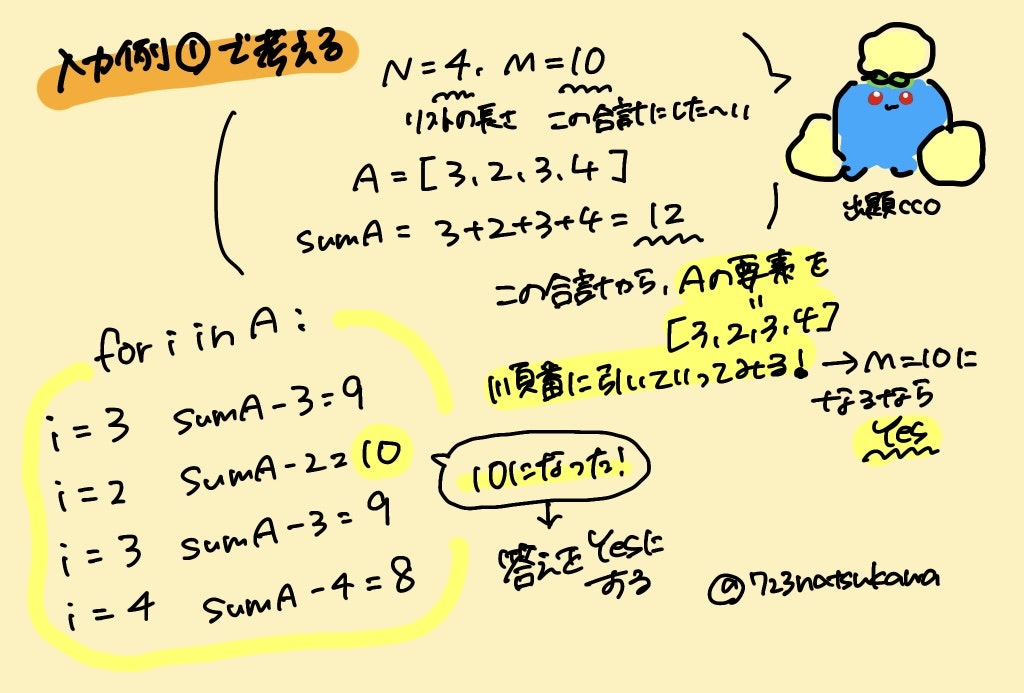 入力例①で考える
N=4, M=10
リストの長さ この合計にした〜い
A=[3,2,3,4]
sumA= 3+2+3+4=12
出題cco
この合計から、Aの要素を
=
[3,2,3,4]
順番に引いていってみる!
→M=10に
なるなら
Yes
for i in A:
i=3 sumA-3=9
i=2 sumA-2=10
i=3 sumA-3=9
i=4 sumA-4=8
10になった!
↓
答えをYesに
する
@723natsukawa